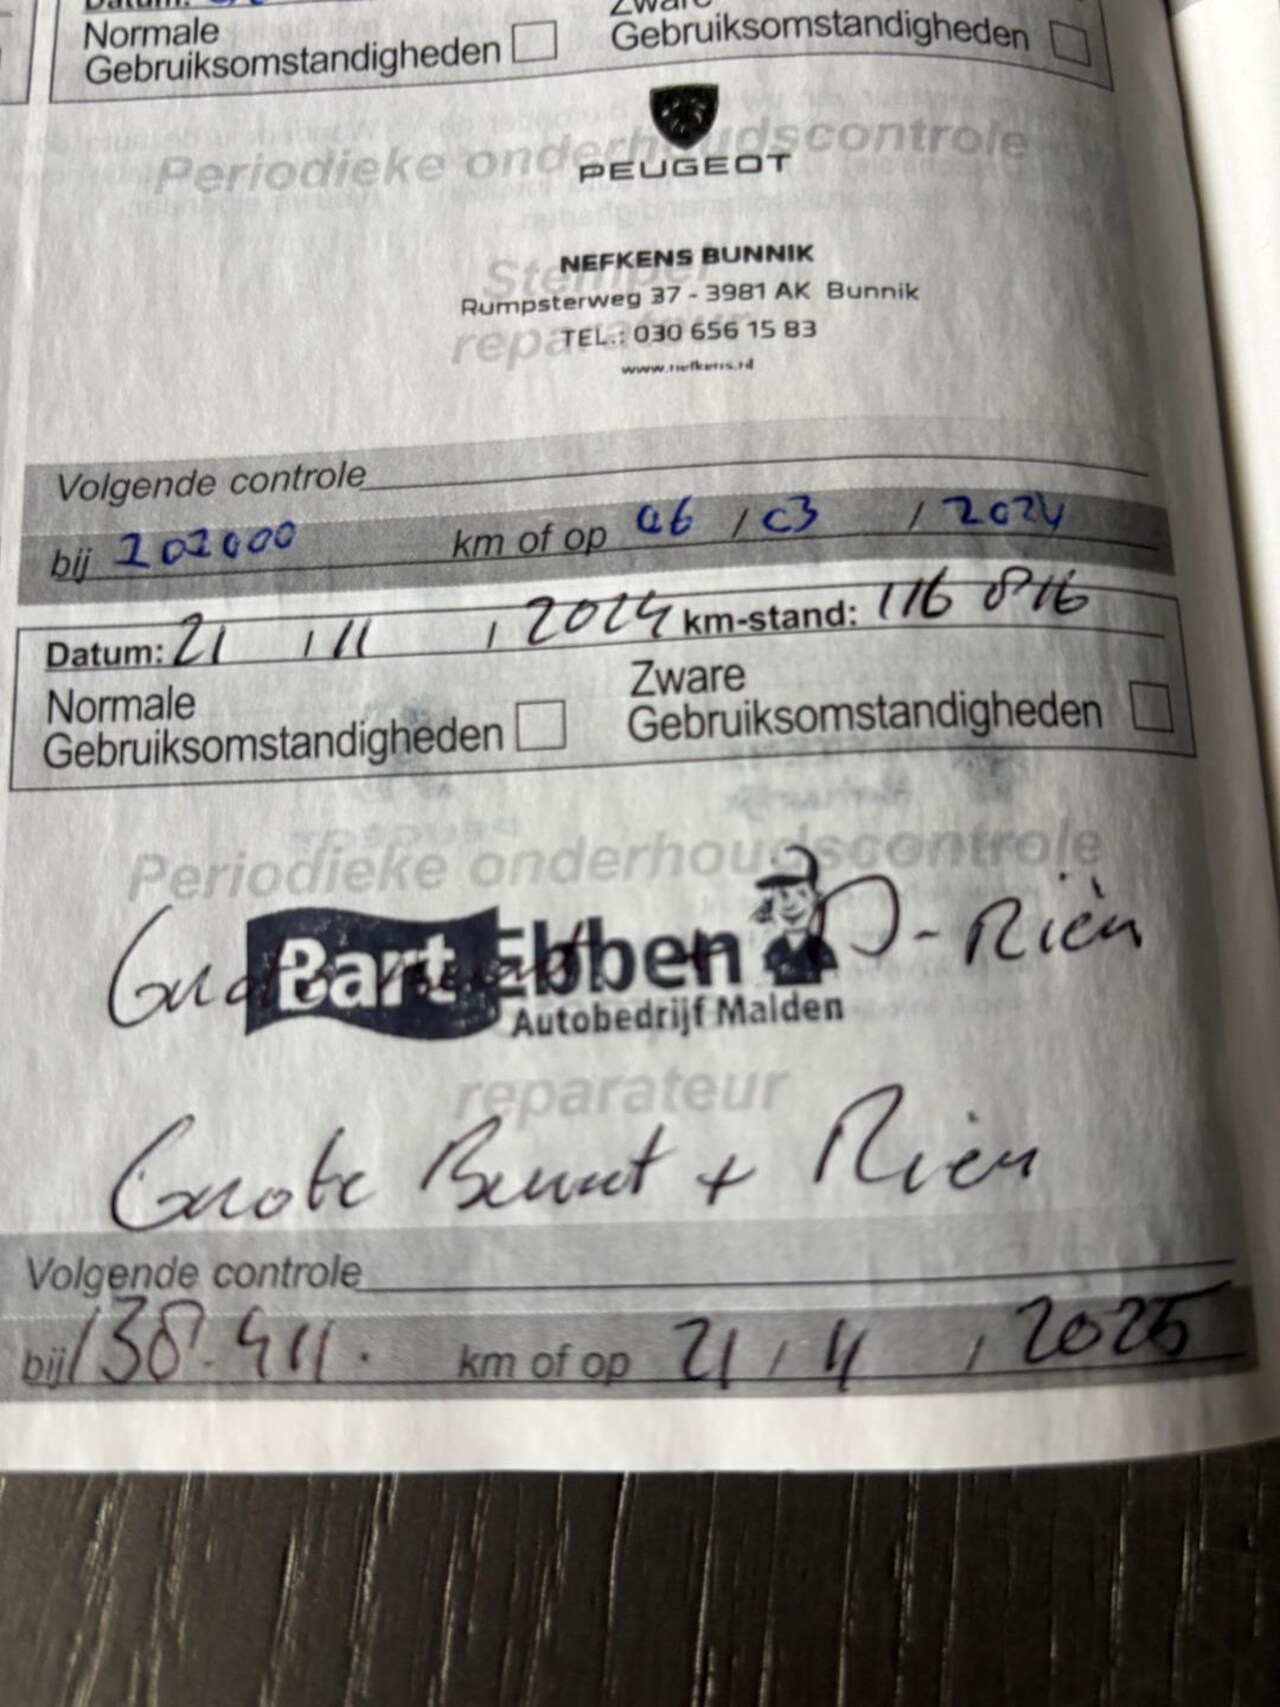 Datum:
Normale
Gebruiksomstandigheden
Zware
Gebruiksomstandigheden
Periodieke onderhoudscontrole
PEUGEOT
Stempel
NEFKENS BUNNIK
Rumpsterweg 37 - 3981 AK Bunnik
reparateur
TEL.: 030 656 15 83
www.nefkens.nl
Volgende controle
bij 202000 km of op 06 / 03 / 2024
Datum: 21 / 11 / 2024 km-stand: 116 816
Normale
Gebruiksomstandigheden
Zware
Gebruiksomstandigheden
Periodieke onderhoudscontrole
Bart Ebben
D-Riem
Autobedrijf Malden
reparateur
Grote Beurt + Riem
Volgende controle
bij 138.411. km of op 21 / 11 / 2025